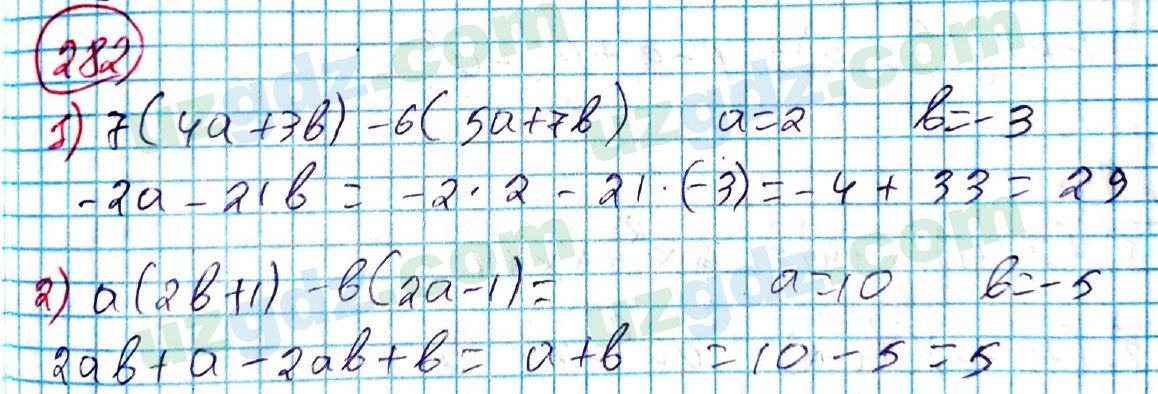 282
1) 7(4a+3b) -6(5a+7b) a=2 b=-3
-2a - 21b = -2·2 - 21·(-3) = -4 + 33 = 29
2) a(2b+1) - b(2a-1) = a=10 b=-5
2ab+a-2ab+b = a+b = 10-5=5
uzgdz.com
uzgdz.com
uzgdz.com
uzgdz.com